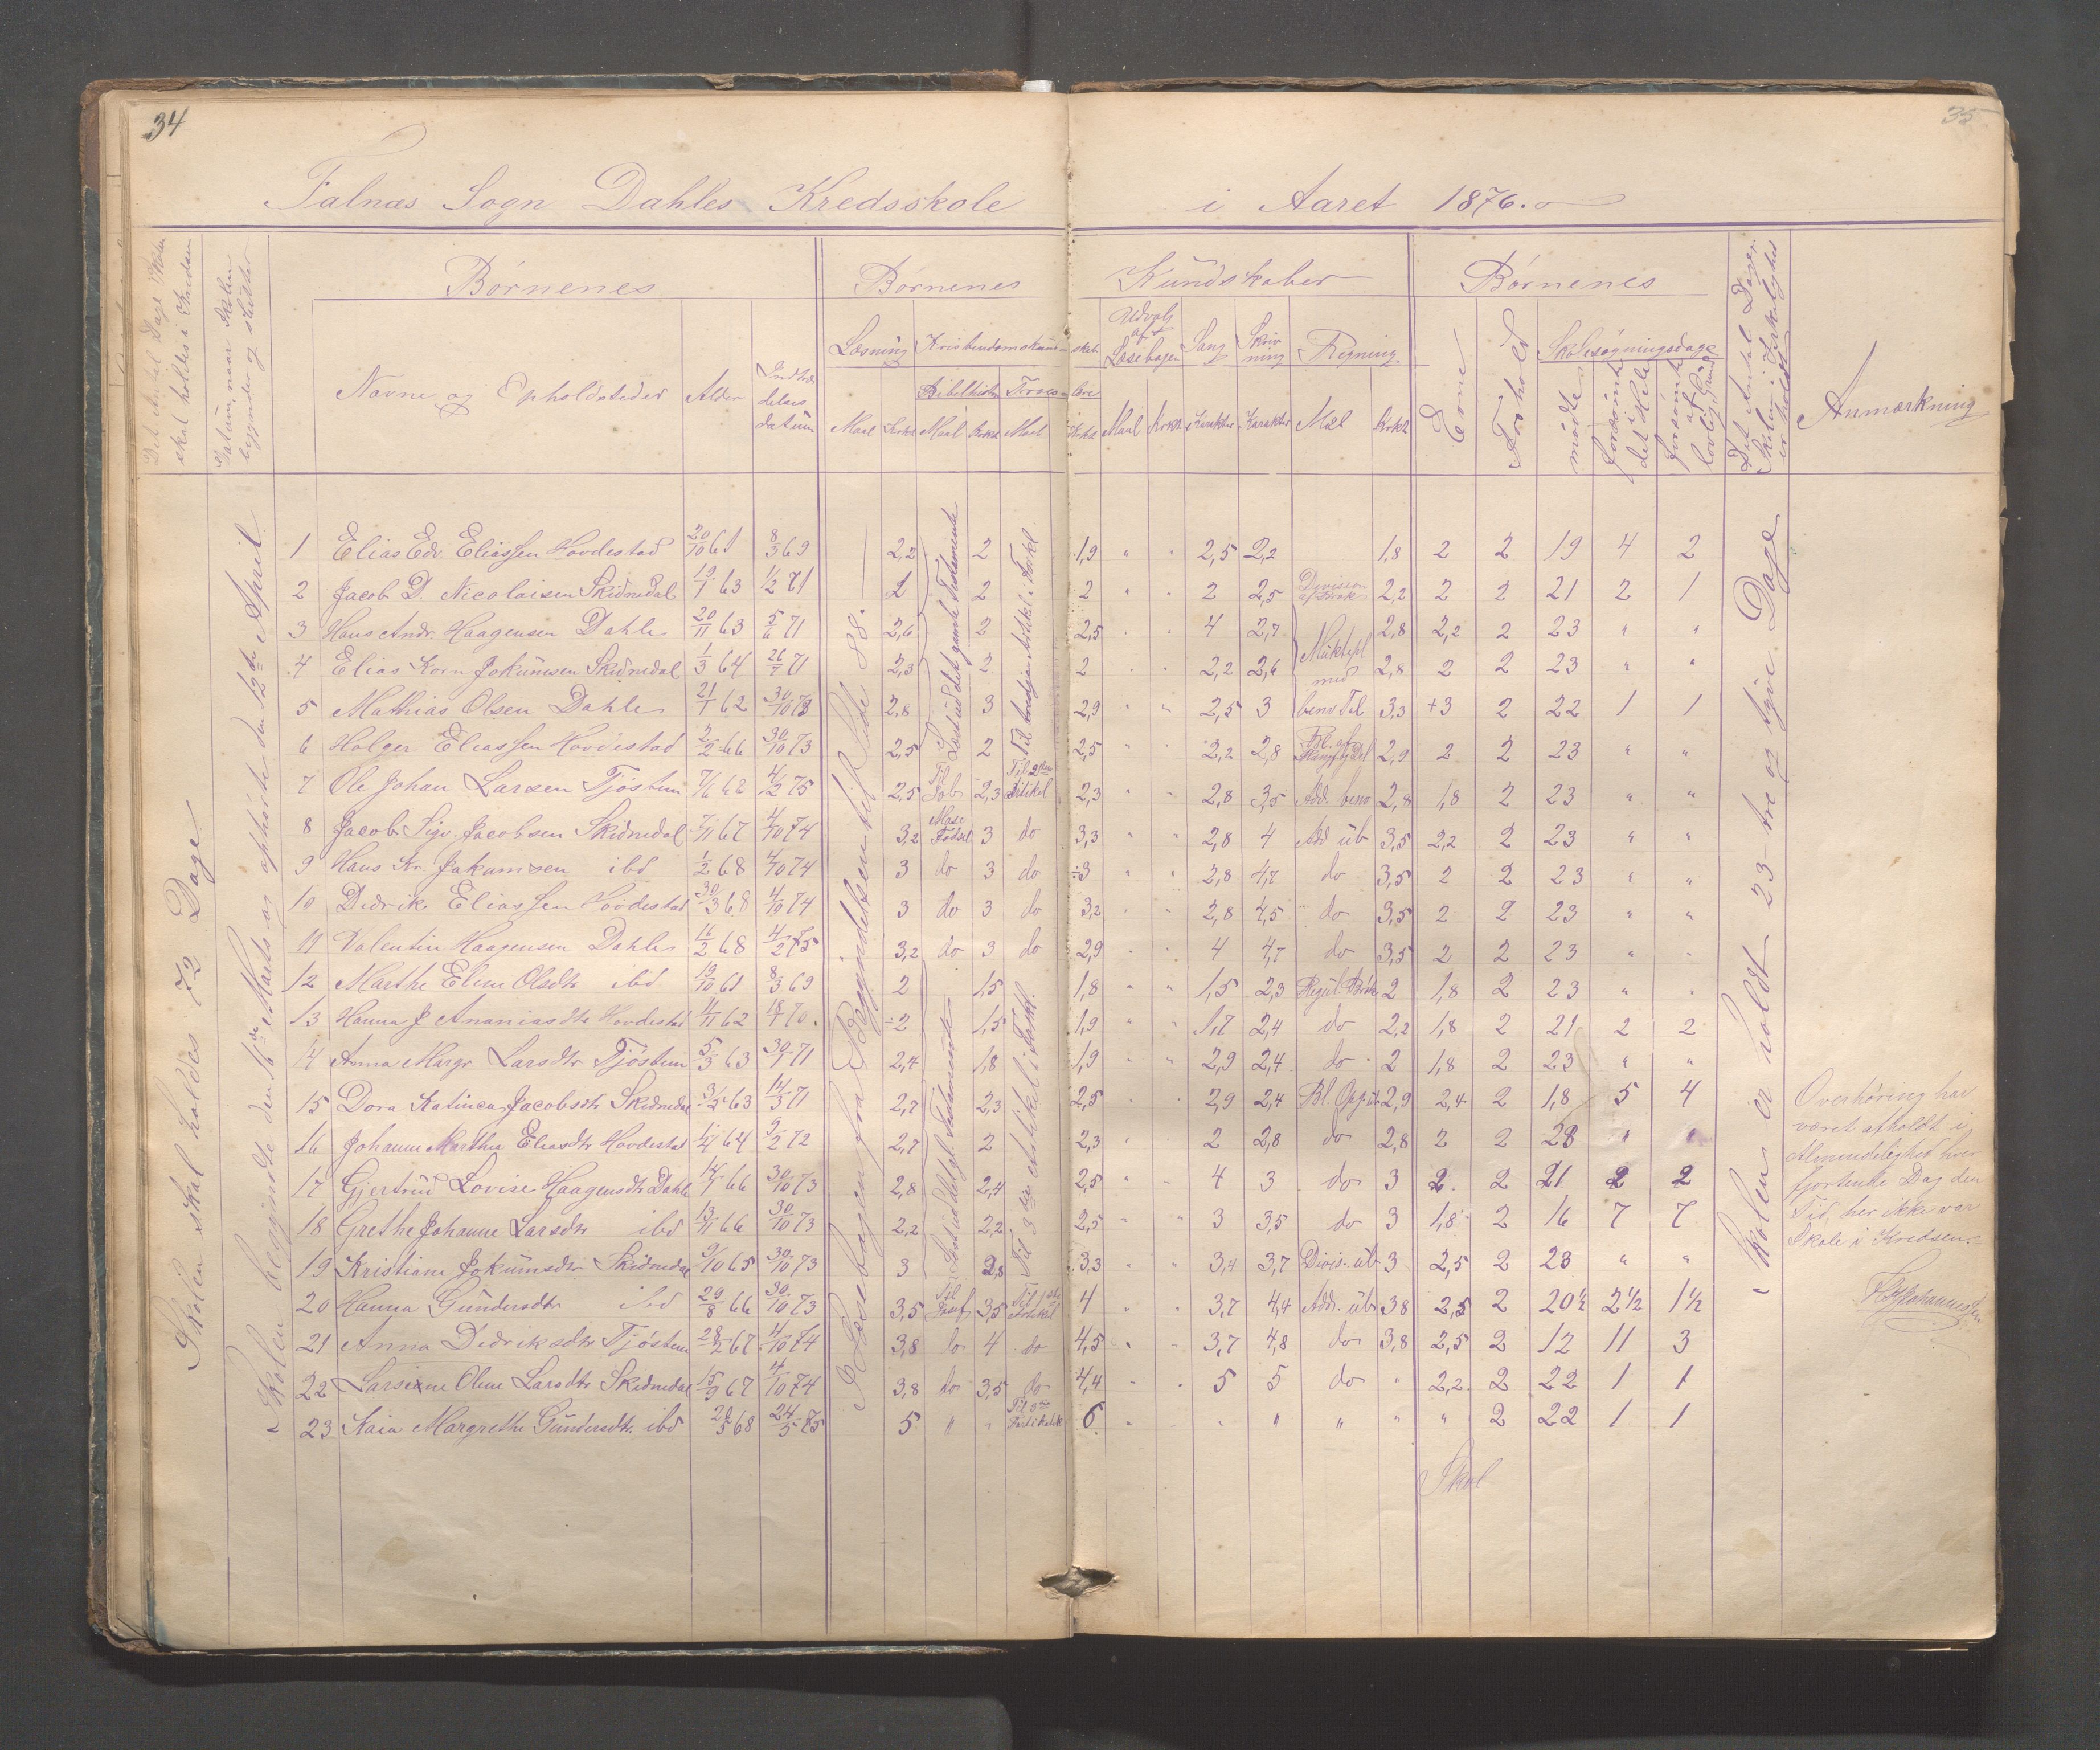 34
35
Falnæs Sogn Dahles Kredsskole i Aaret 1876.
Det Antal Dage Skolen skal holdes i Kredsen
Datum, naar Skolen begynder og slutter
Børnenes
Børnenes Kundskaber
Børnenes
Navne og Opholdsteder
Alder
Indtrædelses datum
Læsning
Kristendomskundskab
Udvalg af Læsebogen
Sang
Skrivning
Regning
Bibelhist
Troeslære
Maal
Evne
Forhold
Skolesøgningsdage
mødte
forsømte i det Hele
forsømte af lovlig Grund
Det Antal Dage Skolen i Virkeligheden er holdt
Anmærkning
Skolen skal holdes 72 Dage
Skolen begyndte den 16de Marts og ophørte den 12te April.
I Læsebogen fra Begyndelsen til Side 88.
Læst ud det gamle Testamente
Til tredje Artikel i Forkl
1 Elias Edv. Eliassen Hovdestad 20/10 61 8/3 69 2,2 2 1,9 " " 2,5 2,2 1,8 2 2 19 4 2
2 Jacob D. Nicolaisen Skidnedal 19/1 63 1/2 71 2 2 2 " " 2 2,5 Division af Brøk 2,2 2 2 21 2 1
3 Hans Andr. Haagensen Dahle 20/11 63 5/6 71 2,6 2 2,5 4 2,7 2,8 2,2 2 23 " "
4 Elias Korn. Jokumsen Skidnedal 1/3 64 26/7 71 2,3 2 2 2,2 2,6 2,8 2 2 23 " "
5 Mathias Olsen Dahle 21/1 62 30/10 73 2,8 3 2,9 " " 2,5 3 3,3 +3 2 22 1 1
6 Holger Eliassen Hovdestad 2/2 66 30/10 73 2,5 2 2,5 " " 2,2 2,8 2,9 2 2 23 " "
7 Ole Johan Larsen Tjøstem 7/6 62 4/2 75 2,5 Til Job 2,3 Til 2den Artikel 2,3 " " 2,8 3,5 Add. benv 2,8 1,8 2 23 " "
8 Jacob Sigv. Jacobsen Skidnedal 7/11 67 4/10 74 3,2 Mose Fødsel 3 do 3,3 " " 2,8 4 Add ub 3,5 2,2 2 23 " "
9 Hans Kr. Jakumsen ibd 1/2 68 4/10 74 3 do 3 do ÷3 " " 2,8 4,7 do 3,5 2 2 23 " "
10 Didrik Eliassen Hovdestad 30/3 68 4/10 74 3 do 3 do 3,2 " " 2,8 4,5 do 3,5 2 2 23 " "
11 Valentin Haagensen Dahle 11/2 68 4/2 75 3,2 do 3 do 2,9 4 4,7 do 3,5 2 2 23 " "
12 Marthe Eline Olsdtr ibd 19/10 61 8/3 69 2 1,5 1,8 " " 1,5 2,3 Regul. Brøk 2 1,8 2 23 " "
13 Hanna J Ananiasdtr Hovdestad 4/11 62 18/1 70 ÷2 1,5 1,9 " " 1,7 2,4 do 2,2 1,8 2 21 2 2
14 Anna Margr. Larsdtr Tjøstem 5/3 63 30/1 71 2,4 1,8 1,9 " " 2,9 2,4 do 2 1,8 2 23 " "
15 Dora Katinca Jacobsdtr Skidnedal 3/5 63 14/3 71 2,7 2,3 2,5 2,9 2,4 2,9 2,4 2 1,8 5 4
16 Johanne Marthea Eliasdtr Hovdestad 1/4 64 9/2 72 2,7 2 2,3 2 2,8 do 2,8 2 2 23 " "
17 Gjertrud Lovise Haagensdtr Dahle 14/1 66 30/10 73 2,8 2,4 2,5 " " 4 3 do 3 2 2 21 2 2
18 Grethe Johanne Larsdtr ibd 13/11 66 30/10 73 2,2 2,2 2,5 " " 3 3,5 do 3 1,8 2 16 7 7
19 Kristiane Jokumsdtr Skidnedal 9/10 65 30/10 73 3 2,8 3,3 " " 3,4 3,7 Divis. ub 3 2,5 2 23 " "
20 Hanna Gundersdtr ibd 29/8 66 30/10 73 3,5 3,5 Til 1ste Artikel 4 " " 3,7 4,4 Add. ub 3,8 2,5 2 20½ 2½ 1½
21 Anna Didriksdtr Tjøstem 28/2 67 4/10 74 3,8 do 4 do 4,5 " " 3,7 4,8 do 3,8 2,5 2 12 11 3
22 Larsine Oline Larsdtr Skidnedal 15/9 67 4/10 74 3,8 do 3,5 do 4,4 " " 5 5 do " 2,2 2 22 1 1
23 Kaia Margrethe Gundersdtr. ibd 20/5 68 24/5 75 5 " " 6 " " " " " " " 2 22 1 1
Læst ud det gl. Testamente
Til 3die Artikel i Forkl.
Skolen er holdt 23 – tre og tyve Dage
Overhøring har
været afholdt i
Almindelighed hver
fjortende Dag den
Tid, her ikke var
Skole i Kredsen.
Skol